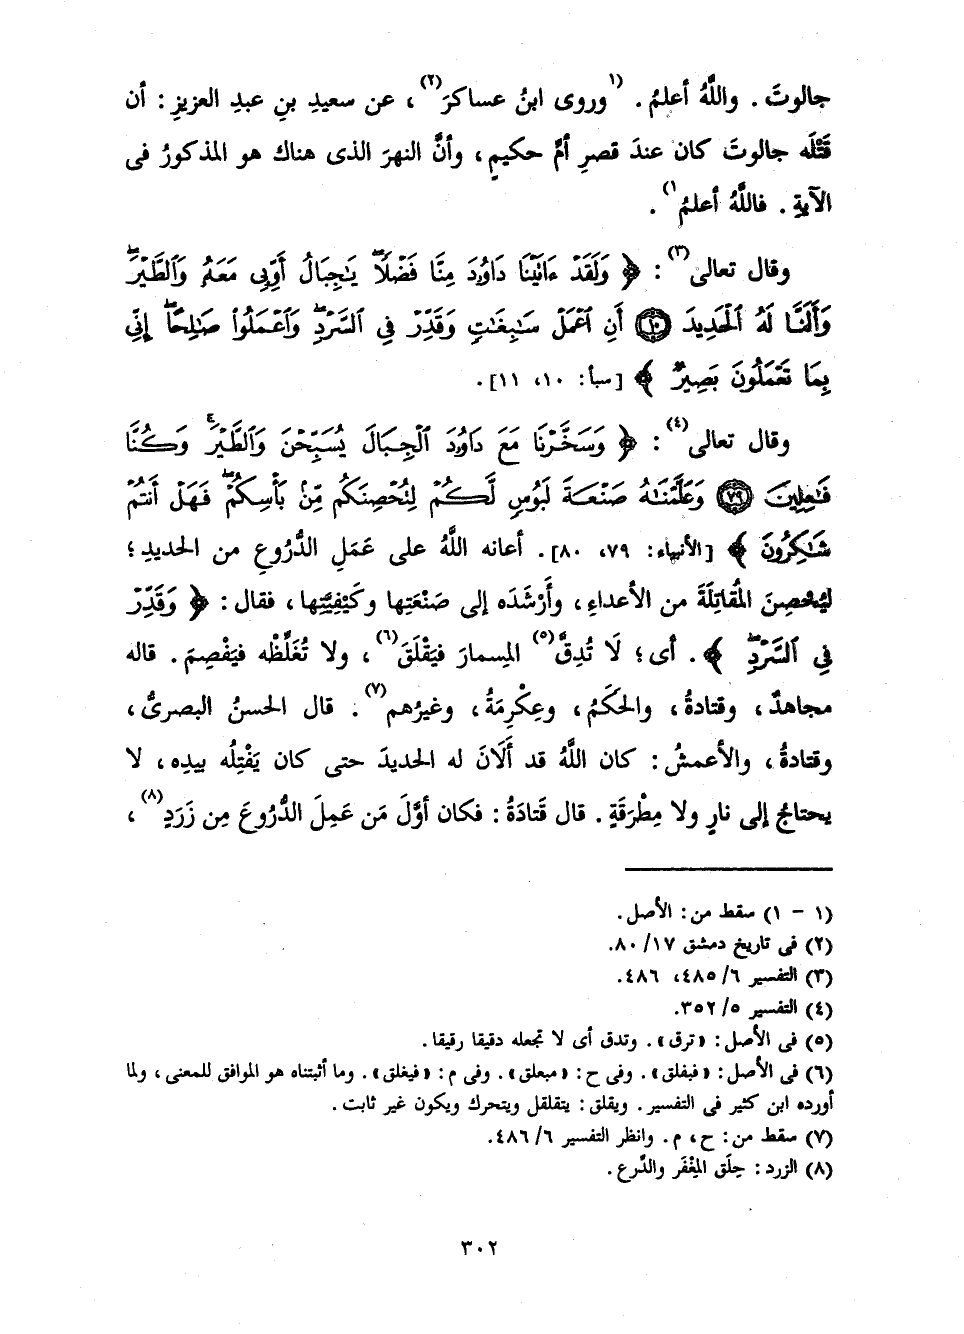 جالوتَ . واللَّهُ أعلمُ . (١وروى ابنُ عساكرَ(٢) ، عن سعيدِ بنِ عبدِ العزيزِ : أن
قَتْلَه جالوتَ كان عندَ قصرِ أمِّ حكيمٍ ، وأنَّ النهرَ الذى هناك هو المذكورُ فى
الآيةِ . فاللَّهُ أعلمُ١) .
وقال تعالى(٣) : ﴿ وَلَقَدْ ءَاتَيْنَا دَاوُۥدَ مِنَّا فَضْلًاۖ يَٰجِبَالُ أَوِّبِى مَعَهُۥ وَٱلطَّيْرَۖ
وَأَلَنَّا لَهُ ٱلْحَدِيدَ ١٠ أَنِ ٱعْمَلْ سَٰبِغَٰتٍ وَقَدِّرْ فِى ٱلسَّرْدِۖ وَٱعْمَلُوا۟ صَٰلِحًاۖ إِنِّى
بِمَا تَعْمَلُونَ بَصِيرٌ ﴾ [سبأ: ١٠، ١١] .
وقال تعالى(٤) : ﴿ وَسَخَّرْنَا مَعَ دَاوُۥدَ ٱلْجِبَالَ يُسَبِّحْنَ وَٱلطَّيْرَۚ وَكُنَّا
فَٰعِلِينَ ٧٩ وَعَلَّمْنَٰهُ صَنْعَةَ لَبُوسٍ لَّكُمْ لِتُحْصِنَكُم مِّنۢ بَأْسِكُمْۖ فَهَلْ أَنتُمْ
شَٰكِرُونَ ﴾ [الأنبياء: ٧٩، ٨٠] . أعانه اللَّهُ على عَمَلِ الدُّرُوعِ من الحديدِ ؛
ليُحْصِنَ المُقاتِلَةَ من الأعداءِ ، وأَرْشَدَه إلى صَنْعَتِها وكَيْفِيَّتِها ، فقال : ﴿ وَقَدِّرْ
فِى ٱلسَّرْدِۖ ﴾ . أى ؛ لَا تُدِقَّ(٥) المِسمارَ فيَقْلَقَ(٦) ، ولا تُغَلِّظْه فيَفْصِمَ . قاله
مجاهدٌ ، وقتادةُ ، والحَكَمُ ، وعِكْرِمَةُ ، وغيرُهم(٧) . قال الحسنُ البصرىُّ ،
وقتادةُ ، والأعمشُ : كان اللَّهُ قد أَلَانَ له الحديدَ حتى كان يَفْتِلُه بيدِه ، لا
يحتاجُ إلى نارٍ ولا مِطْرَقَةٍ . قال قَتادَةُ : فكان أوَّلَ مَن عَمِلَ الدُّرُوعَ مِن زَرَدٍ(٨) ،
(١ - ١) سقط من : الأصل .
(٢) فى تاريخ دمشق ١٧/ ٨٠.
(٣) التفسير ٦/ ٤٨٥، ٤٨٦.
(٤) التفسير ٥/ ٣٥٢.
(٥) فى الأصل : «ترق» . وتدق أى لا تجعله دقيقا رقيقا .
(٦) فى الأصل : «فيفلق» . وفى ح : «مبعلق» . وفى م : «فيغلق» . وما أثبتناه هو الموافق للمعنى ، ولما
أورده ابن كثير فى التفسير . ويقلق : يتقلقل ويتحرك ويكون غير ثابت .
(٧) سقط من : ح ، م . وانظر التفسير ٦/ ٤٨٦.
(٨) الزرد : حِلَق المِغْفَر والدِّرع .
٣٠٢